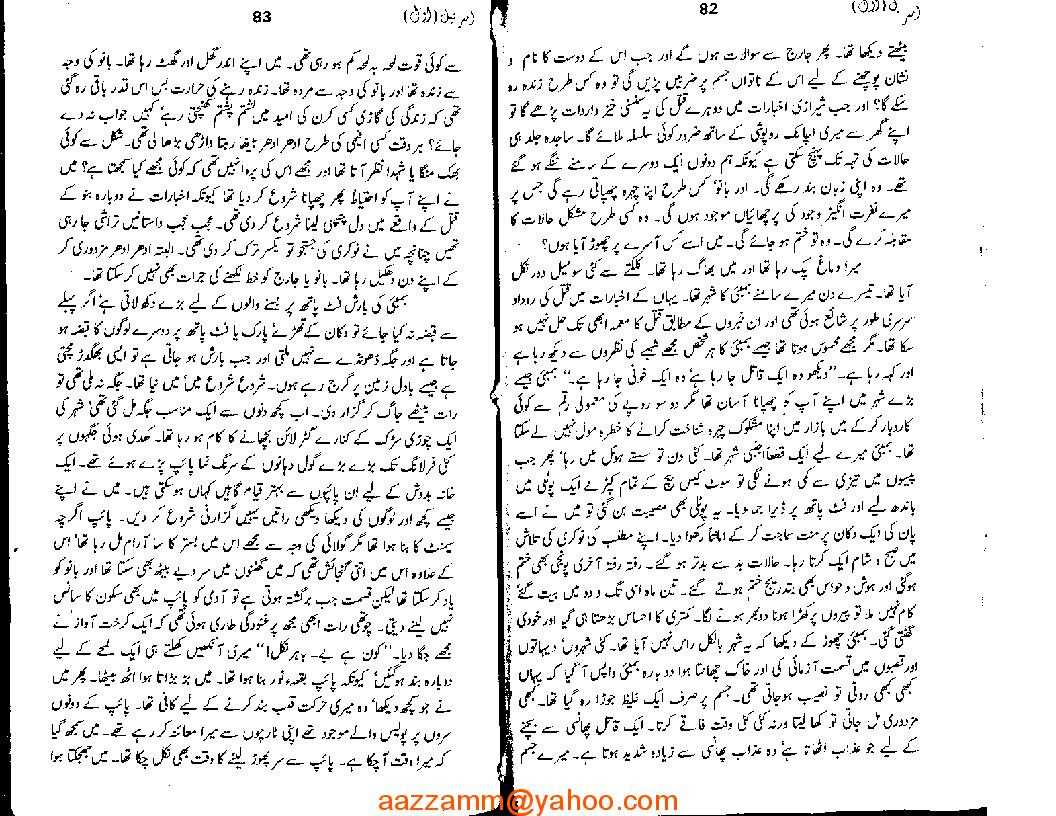 82
بیٹھے دیکھا تھا۔ پھر جارج سے سوالات ہوں گے اور جب اس کے دوست کا نام و
نشان پوچھنے کے لیے اس کے ناتواں جسم پر ضربیں پڑیں گی تو وہ کس طرح زندہ رہ
سکے گا؟ اور جب شیرازی اخبارات میں دوہرے قتل کی یہ سنسنی خیز واردات پڑھے گا تو
اپنے گھر سے میری اچانک روپوشی کے ساتھ ضرور کوئی سلسلہ ملائے گا۔ ساجدہ جلد ہی
حالات کی تہہ تک پہنچ سکتی ہے کیونکہ ہم دونوں ایک دوسرے کے سامنے ننگے ہو گئے
تھے۔ وہ اپنی زبان بند رکھے گی۔ اور بانو کس طرح اپنا چہرہ چھپاتی رہے گی جس پر
میرے نفرت انگیز وجود کی پرچھائیاں موجود ہوں گی۔ وہ کس طرح مشکل حالات کا
مقابلہ کرے گی۔ وہ تو ختم ہو جائے گی۔ میں اسے کس آسرے پر چھوڑ آیا ہوں؟
میرا دماغ پک رہا تھا اور میں بھاگ رہا تھا۔ کلکتے سے کئی سو میل دور نکل
آیا تھا۔ تیسرے دن میرے سامنے بمبئی کا شہر تھا۔ یہاں کے اخبارات میں قتل کی روداد
سرسری طور پر شائع ہوئی تھی اور ان خبروں کے مطابق قتل کا معمہ ابھی تک حل نہیں ہو
سکا تھا۔ مگر مجھے محسوس ہوتا تھا جیسے بمبئی کا ہر شخص مجھے شبے کی نظروں سے دیکھ رہا ہے
اور کہہ رہا ہے۔ ”دیکھو وہ ایک قاتل جا رہا ہے وہ ایک خونی جا رہا ہے۔“ بمبئی جیسے
بڑے شہر میں اپنے آپ کو چھپانا آسان تھا مگر دو سو روپے کی معمولی رقم سے کوئی
کاروبار کر کے میں بازار میں اپنا مشکوک چہرہ شناخت کرانے کا خطرہ مول نہیں لے سکتا
تھا۔ بمبئی میرے لیے ایک قطعاً اجنبی شہر تھا۔ کئی دن تو سستے ہوٹل میں رہا پھر جب
پیسوں میں تیزی سے کمی ہونے لگی تو سوٹ کیس بیچ کے تمام کپڑے ایک پوٹلی میں
باندھ لیے اور فٹ پاتھ پر ڈیرا جما دیا۔ یہ پوٹلی بھی مصیبت بن گئی تو میں نے اسے
پان کی ایک دکان پر منت سماجت کر کے امانتاً رکھوا دیا۔ اپنے مطلب کی نوکری کی تلاش
میں صبح و شام ایک کرتا رہا۔ حالات بد سے بدتر ہو گئے۔ رفتہ رفتہ آخری پونجی بھی ختم
ہوگئی اور ہوش و حواس بھی بتدریج ختم ہوتے گئے۔ تین ماہ اسی تگ و دو میں بیت گئے
کام نہیں ملا تو پیروں پر کھڑا ہونا دوبھر ہونے لگا۔ کمتری کا احساس بڑھتا ہی گیا اور خودی
گھٹتی گئی۔ بمبئی چھوڑ کے دیکھا کہ یہ شہر بالکل راس نہیں آیا تھا۔ کئی شہروں دیہاتوں
اور قصبوں میں قسمت آزمائی کی اور خاک چھانتا ہوا دوبارہ بمبئی واپس آ گیا کہ یہاں
کبھی کبھی روٹی تو نصیب ہو جاتی تھی۔ جسم پر صرف ایک غلیظ جوڑا رہ گیا تھا۔ کبھی
مزدوری مل جاتی تو کھا لیتا ورنہ کئی کئی وقت فاقے کرتا۔ ایک قاتل پھانسی سے بچنے
کے لیے جو عذاب اٹھاتا ہے وہ عذاب پھانسی سے زیادہ شدید ہوتا ہے۔ میرے جسم
83
(اول)
سے کوئی قوت لمحہ بہ لمحہ کم ہو رہی تھی۔ میں اپنے اندر گھل اور گھٹ رہا تھا۔ بانو کی وجہ
سے زندہ تھا اور بانو کی وجہ سے مردہ تھا۔ زندہ رہنے کی حرارت بس اس قدر باقی رہ گئی
تھی کہ زندگی کی گاڑی کسی کرن کی امید میں لشتم پشتم کھنچتی رہے کہیں جواب نہ دے
جائے؟ ہر وقت کسی افیمی کی طرح ادھر ادھر بیٹھا رہتا داڑھی بڑھا لی تھی۔ شکل سے کوئی
بھک منگا یا شہدا نظر آتا تھا اور مجھے اس کی پروا نہیں تھی کہ کوئی مجھے کیا سمجھتا ہے؟ میں
نے اپنے آپ کو احتیاطاً پھر چھپانا شروع کر دیا تھا کیونکہ اخبارات نے دوبارہ ببو کے
قتل کے واقعے میں دل چسپی لینا شروع کر دی تھی۔ عجب عجب داستانیں تراشی جا رہی
تھیں چنانچہ میں نے نوکری کی جستجو تو یکسر ترک کر دی تھی۔ البتہ ادھر ادھر مزدوری کر
کے اپنے دن دھکیل رہا تھا۔ بانو یا جارج کو خط لکھنے کی جرات بھی نہیں کر سکتا تھا۔
بمبئی کی بارش فٹ پاتھ پر بسنے والوں کے لیے بڑے دکھ لاتی ہے اگر پہلے
سے قبضہ نہ کیا جائے تو دکان کے تھڑے پارک یا فٹ پاتھ پر دوسرے لوگوں کا قبضہ ہو
جاتا ہے اور جگہ ڈھونڈے سے نہیں ملتی اور جب بارش ہو جاتی ہے تو ایسی بھگدڑ مچتی
ہے جیسے بادل زمین پر گرج رہے ہوں۔ شروع شروع میں میں نیا تھا۔ جگہ نہ ملی تھی تو
رات بیٹھے جاگ کر گزار دی۔ اب کچھ دنوں سے ایک مناسب جگہ مل گئی تھی شہر کی
ایک چوڑی سڑک کے کنارے گٹر لائن بچھانے کا کام ہو رہا تھا۔ کھدی ہوئی جگہوں پر
کئی فرلانگ تک بڑے بڑے گول دہانوں کے سرنگ نما پائپ پڑے ہوئے تھے۔ ایک
خانہ بدوش کے لیے ان پائپوں سے بہتر قیام گاہیں کہاں ہو سکتی ہیں۔ میں نے اپنے
جیسے کچھ اور لوگوں کی دیکھا دیکھی راتیں یہیں گزارنی شروع کر دیں۔ پائپ اگرچہ
سیمنٹ کا بنا ہوا تھا مگر گولائی کی وجہ سے مجھے اس میں بستر کا سا آرام مل رہا تھا اس
کے علاوہ اس میں اتنی گنجائش تھی کہ میں گھٹنوں میں سر دیے بیٹھ بھی سکتا تھا اور بانو کو
یاد کر سکتا تھا لیکن قسمت جب برگشتہ ہوتی ہے تو آدمی کو پائپ میں بھی سکون کا سانس
نہیں لینے دیتی۔ چوتھی رات ابھی مجھ پر غنودگی طاری ہوئی تھی کہ ایک کرخت آواز نے
مجھے جگا دیا۔ ”کون ہے بے۔ باہر نکل!“ میری آنکھیں کھلتے ہی ایک لمحے کے لیے
دوبارہ بند ہو گئیں کیونکہ پائپ بقعہ نور بنا ہوا تھا۔ میں ہڑبڑاتا ہوا اٹھ بیٹھا۔ پھر میں
نے جو کچھ دیکھا وہ میری حرکت قلب بند کرنے کے لیے کافی تھا۔ پائپ کے دونوں
سروں پر پولیس والے موجود تھے اپنی ٹارچوں سے میرا معائنہ کر رہے تھے۔ میں سمجھ گیا
کہ میرا وقت آ چکا ہے۔ پائپ سے سر پھوڑ لینے کا وقت بھی نکل چکا تھا۔ میں جھجکتا ہوا
aazzamm@yahoo.com